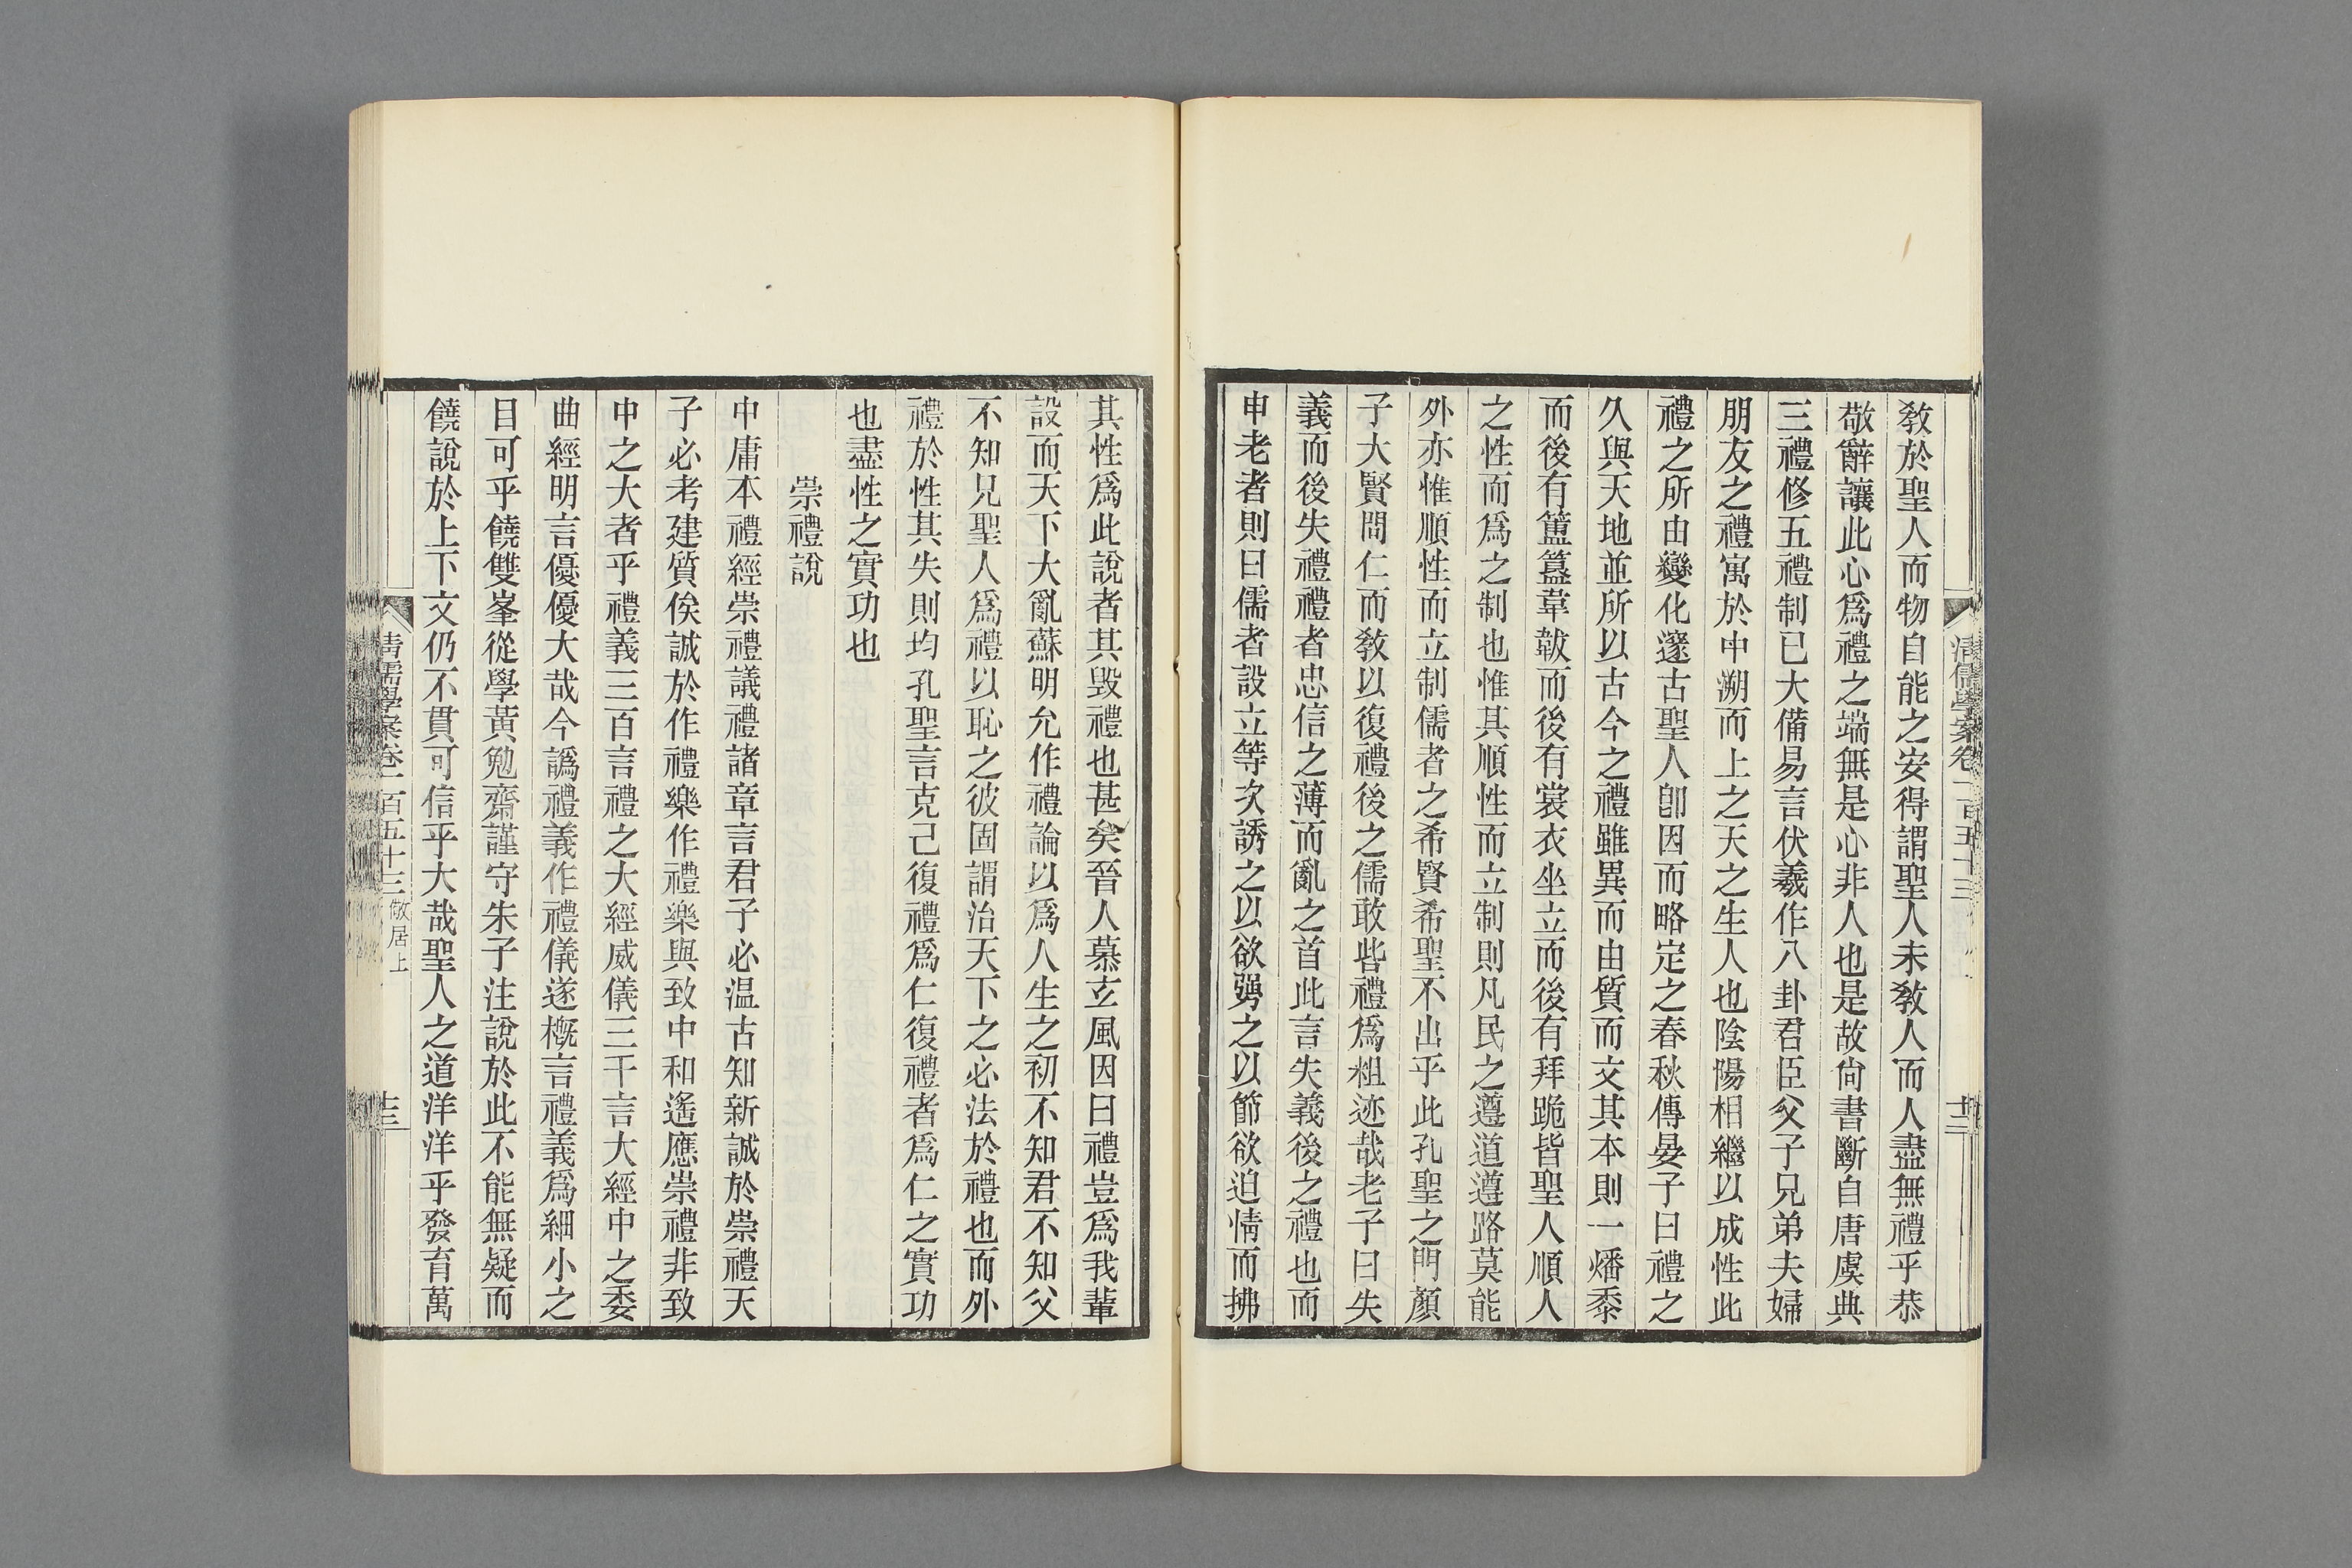 教於聖人而物自能之安得謂聖人未教人而人盡無禮乎恭
敬辭讓此心爲禮之端無是心非人也是故尙書斷自唐虞典
三禮修五禮制已大備易言伏羲作八卦君臣父子兄弟夫婦
朋友之禮寓於中溯而上之天之生人也陰陽相繼以成性此
禮之所由變化邃古聖人卽因而略定之春秋傳晏子曰禮之
久與天地並所以古今之禮雖異而由質而文其本則一燔黍
而後有簠簋韋韍而後有裳衣坐立而後有拜跪皆聖人順人
之性而爲之制也惟其順性而立制則凡民之遵道遵路莫能
外亦惟順性而立制儒者之希賢希聖不出乎此孔聖之門顏
子大賢問仁而教以復禮後之儒敢呰禮爲粗迹哉老子曰失
義而後失禮禮者忠信之薄而亂之首此言失義後之禮也而
申老者則曰儒者設立等次誘之以欲彆之以節欲迫情而拂
清儒學案卷一百五十三
十二
其性爲此說者其毀禮也甚矣晉人慕玄風因曰禮豈爲我輩
設而天下大亂蘇明允作禮論以爲人生之初不知君不知父
不知兄聖人爲禮以恥之彼固謂治天下之必法於禮也而外
禮於性其失則均孔聖言克己復禮爲仁復禮者爲仁之實功
也盡性之實功也
崇禮說
中庸本禮經崇禮議禮諸章言君子必温古知新誠於崇禮天
子必考建質俟誠於作禮樂作禮樂與致中和遙應崇禮非致
中之大者乎禮義三百言禮之大經威儀三千言大經中之委
曲經明言優優大哉今譌禮義作禮儀遂概言禮義爲細小之
目可乎饒雙峯從學黃勉齋謹守朱子注說於此不能無疑而
饒說於上下文仍不貫可信乎大哉聖人之道洋洋乎發育萬
清儒學案卷一百五十三 敬居上
十三